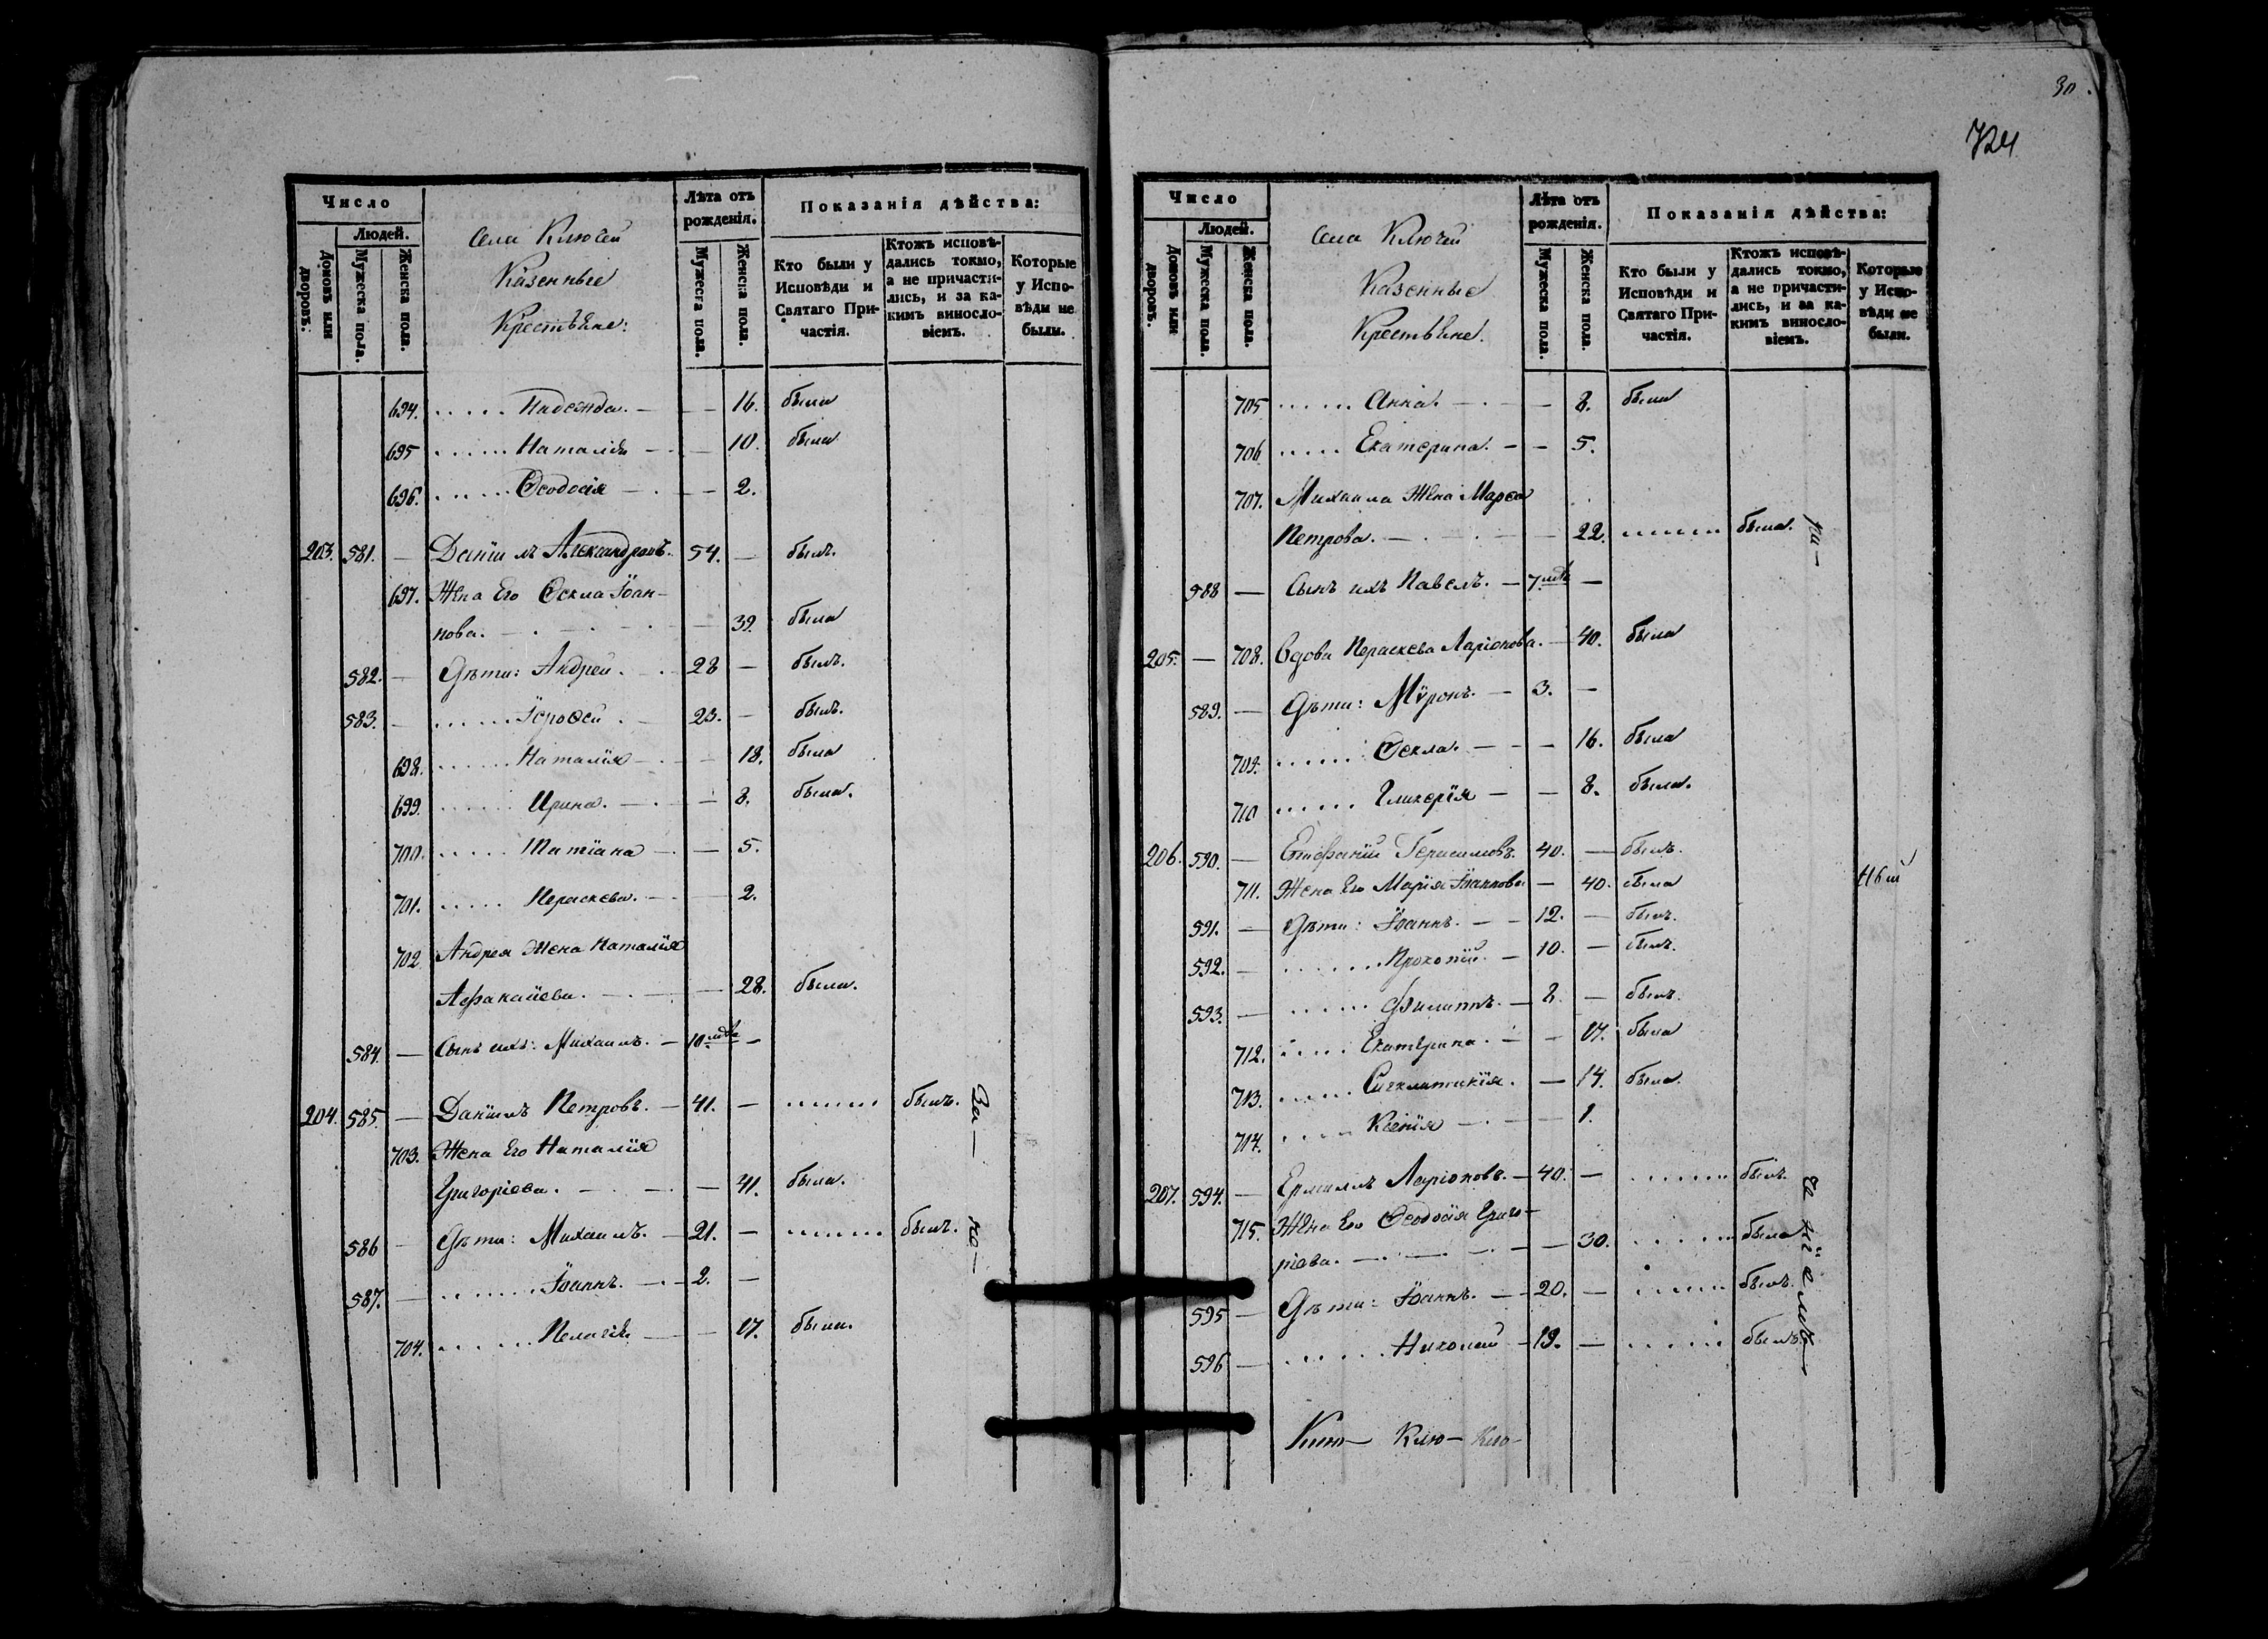 Число
Людей.
Домовъ или дворовъ.
Мужеска пола.
Женска пола.
Села Ключей
Казенные
Крестьяне:
Лѣта отъ рожденія.
Мужеска пола.
Женска пола.
Показанія дѣйства:
Кто были у Исповѣди и Святаго Причастія.
Ктожъ исповѣдались токмо, а не причастились, и за какимъ винословіемъ.
Которые у Исповѣди не были.
694. ...... Надежда. — — 16. была
695 ...... Наталія — — 10. была
696. ...... Ѳеодосія — — 2.
203. 581. — Даніилъ Александровъ. 54. — былъ.
697. Жена Его Ѳекла Іоан-
нова. — — 39. была
582. — Дѣти: Андрей. 28 — былъ.
583. — ...... Іероѳей. 23. — былъ.
698. ...... Наталія — — 18. была
699. ...... Ирина. — — 8. была.
700. ...... Татіана — — 5.
701. ...... Параскева. — — 2.
702. Андрея жена Наталія
— 28. была.
584. — Сынъ ихъ: Михаилъ. — 10 —
204. 585. — Даніилъ Петровъ. — 41. — ...... былъ.
703. Жена Его Наталія
Григоріева. — — 41. была.
586 — Дѣти: Михаилъ. — 21. — ...... былъ.
587. — ...... Іоаннъ. — 2. —
704. ...... Пелагія — — 17. была.
За —
ко —
30.
724
Число
Людей.
Домовъ или дворовъ.
Мужеска пола.
Женска пола.
Села Ключей
Казенные
Крестьяне.
Лѣта отъ рожденія.
Мужеска пола.
Женска пола.
Показанія дѣйства:
Кто были у Исповѣди и Святаго Причастія.
Ктожъ исповѣдались токмо, а не причастились, и за какимъ винословіемъ.
Которые у Исповѣди не были.
705 ...... Анна. — — 8. была
706 ...... Екатерина. — — 5.
707. Михаила Жена Марѳа
Петрова. — — 22. ...... была.
588 — Сынъ ихъ Павелъ. — 7 —
205. — 708. Вдова Параскева Ларіонова. — 40. была
589. — Дѣти: Мѵронъ. — 3. —
709. ...... Ѳекла. — — 16. была
710 ...... Гликерія — — 8. была.
206. 590. — Епифаній Герасимовъ. 40. — былъ.
711. Жена Его Марія Іоаннова — 40. была
591. — Дѣти: Іоаннъ. — 12. — былъ.
592. — ...... Прокопій. — 10. — былъ.
593. — ...... Филиппъ. — 8. — былъ.
712. ...... Екатерина. — — 17. была
713. ...... Сигклитикія. — 14. была.
714. ...... Ксенія — — 1.
207. 594. — Ермилъ Ларіоновъ. — 40. — ...... былъ.
715. Жена Его Ѳеодосія Григо-
ріева. — — 30. ...... была
595 — Дѣти: Іоаннъ. — 20. — ...... былъ.
596 — ...... Николай — 19. — ...... былъ
ра —
Клю- Клю- Клю-